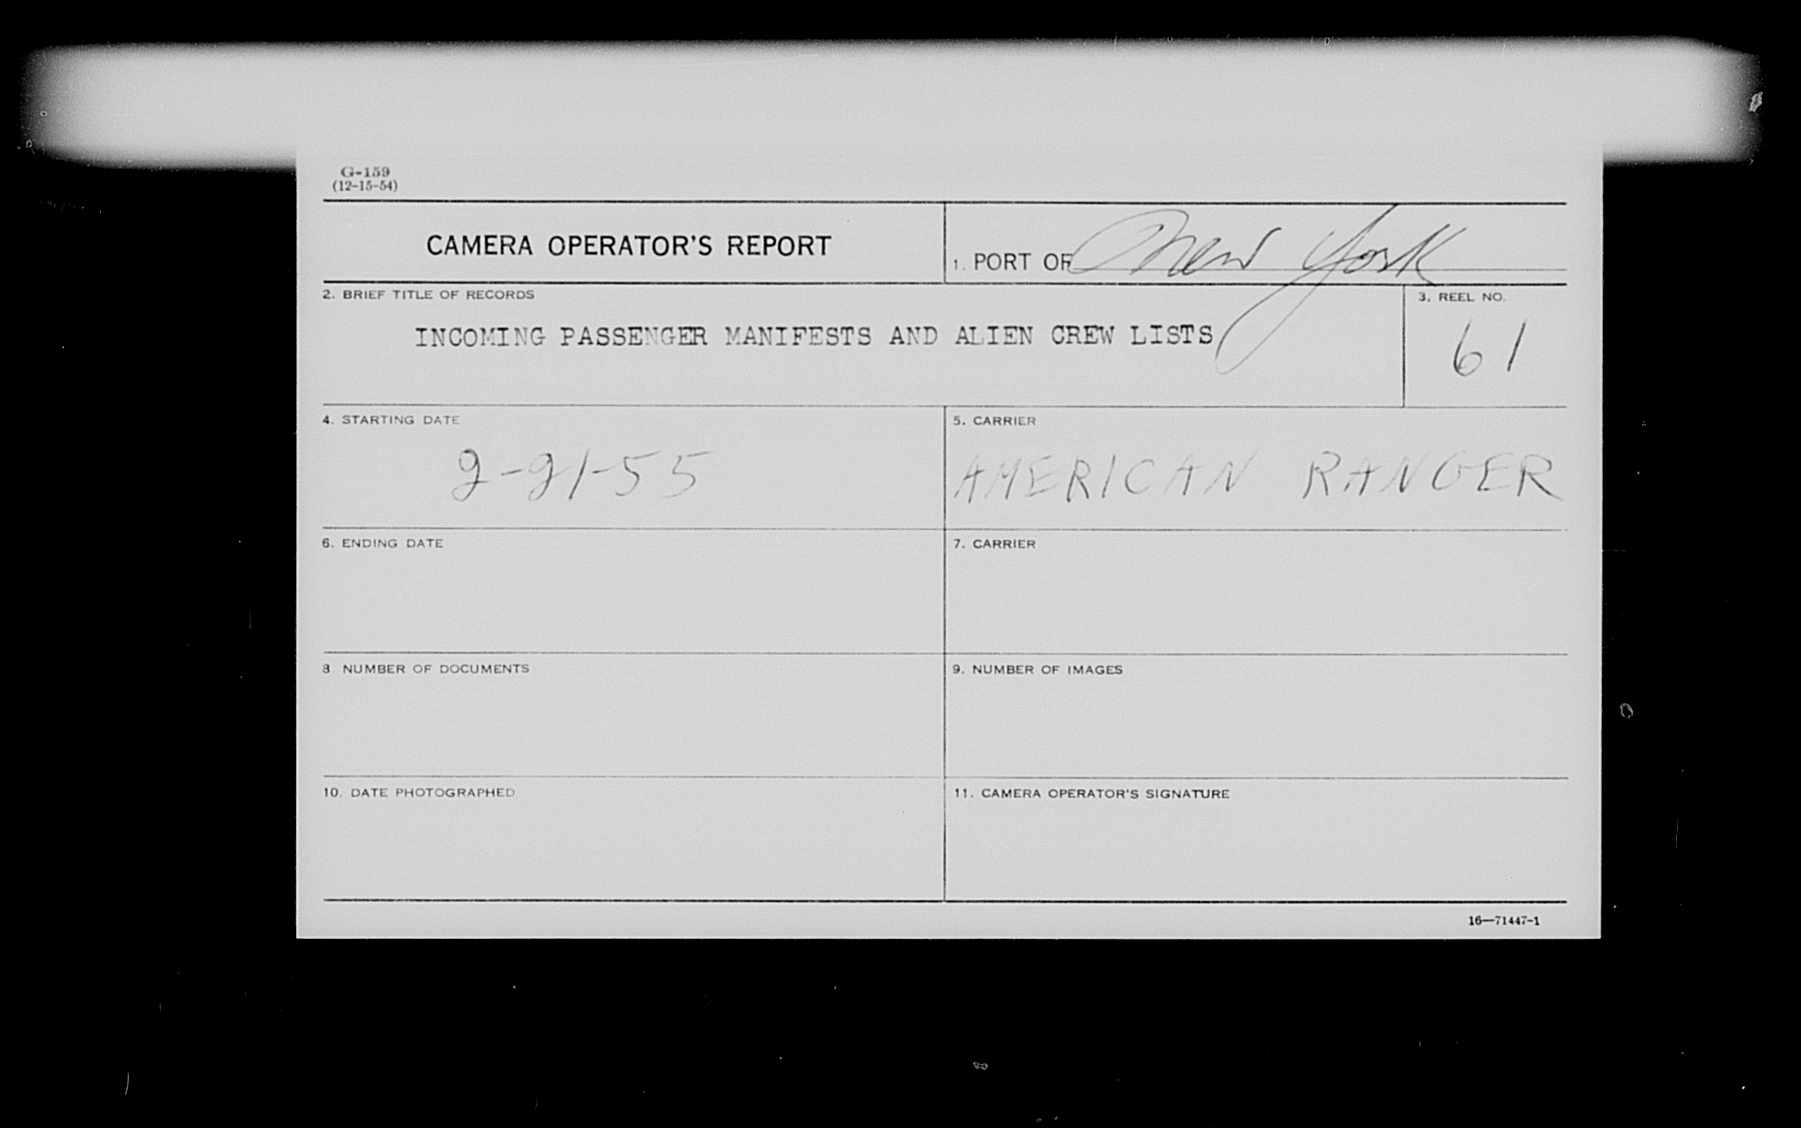 G-159
(12-15-54)
CAMERA OPERATOR'S REPORT
1. PORT OF New York
2. BRIEF TITLE OF RECORDS
INCOMING PASSENGER MANIFESTS AND ALIEN CREW LISTS
3. REEL NO.
61
4. STARTING DATE
2-21-55
5. CARRIER
AMERICAN RANGER
6. ENDING DATE
7. CARRIER
8. NUMBER OF DOCUMENTS
9. NUMBER OF IMAGES
10. DATE PHOTOGRAPHED
11. CAMERA OPERATOR'S SIGNATURE
16—71447-1